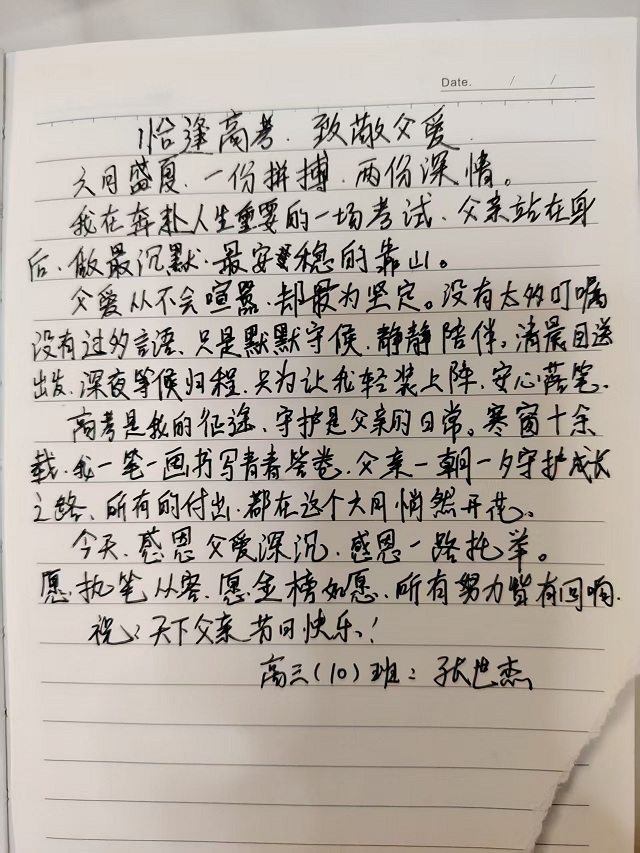 Date. / /
恰逢高考.致敬父爱
六月盛夏.一份拼搏.两份深情。
我在奔赴人生重要的一场考试、父亲站在身
后、做最沉默.最安稳的靠山。
父爱从不会喧嚣、却最为坚定。没有太多叮嘱
没有过多言语、只是默默守候、静静陪伴。清晨目送
出发、深夜等候归程、只为让我轻装上阵、安心落笔.
高考是我的征途、守护是父亲的日常。寒窗十余
载.我一笔一画书写青春答卷、父亲一朝一夕守护成长
之路、所有的付出、都在这个六月悄然开花。
今天、感恩父爱深沉、感恩一路托举。
愿.执笔从容、愿金榜如愿、所有努力皆有回响.
祝:天下父亲节日快乐!
高三(10)班:张世杰